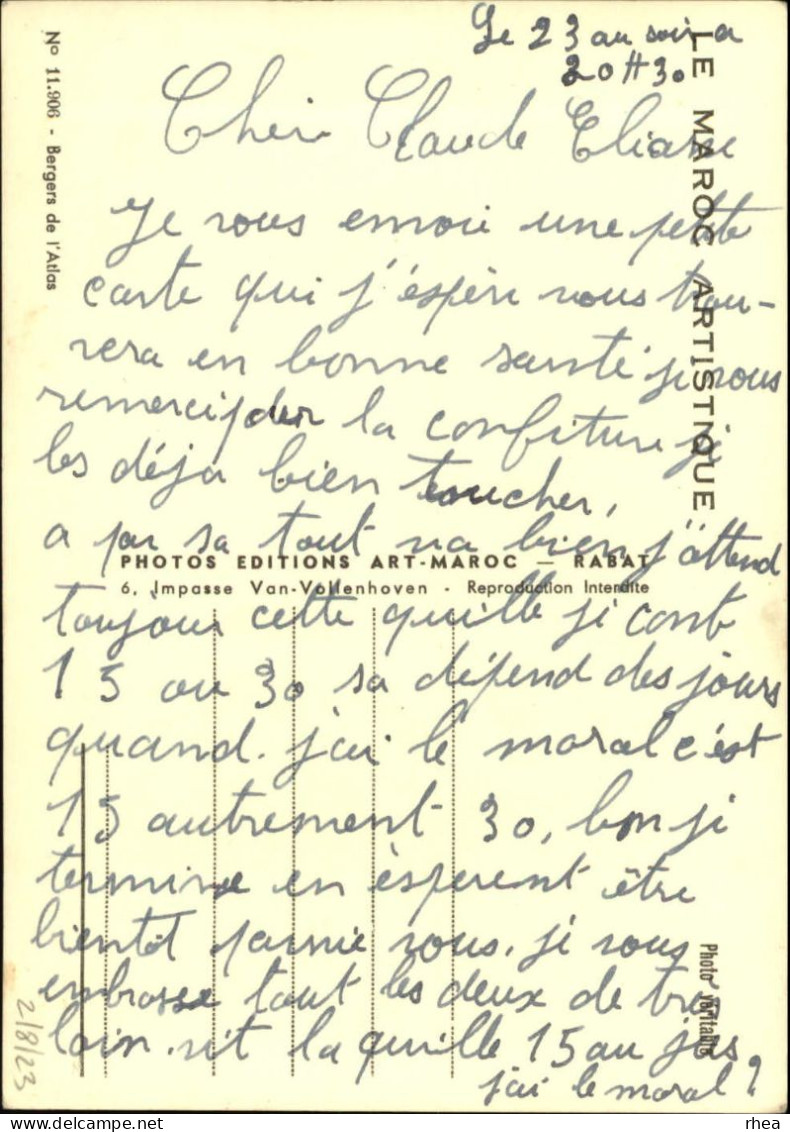 Le 23 au soir a
20H30
Cher Claude Eliane
Je vous envoi une petite
carte qui j'espère vous trou-
vera en bonne santé je vous
remerci pour la confiture je
les déja bien toucher,
a par sa tout va bien j'attend
toujour cette quille je conte
15 ou 30 sa dépend des jours
quand j'ai le moral c'est
15 autrement 30, bon je
termine en èsperent être
bientôt parmie vous. je vous
embrasse tout les deux de très
loin. vit la quille 15 au jus
j'ai le moral?
No 11.906 - Bergers de l'Atlas
LE MAROC ARTISTIQUE
PHOTOS EDITIONS ART-MAROC — RABAT
6, Impasse Van-Vollenhoven - Reproduction Interdite
Photo véritable
2/8/23
rhea